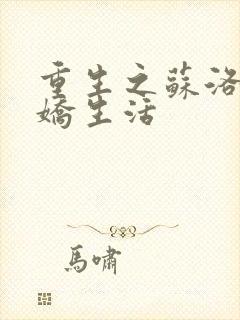 重生之蘇洛
嬌生活
馬嘯